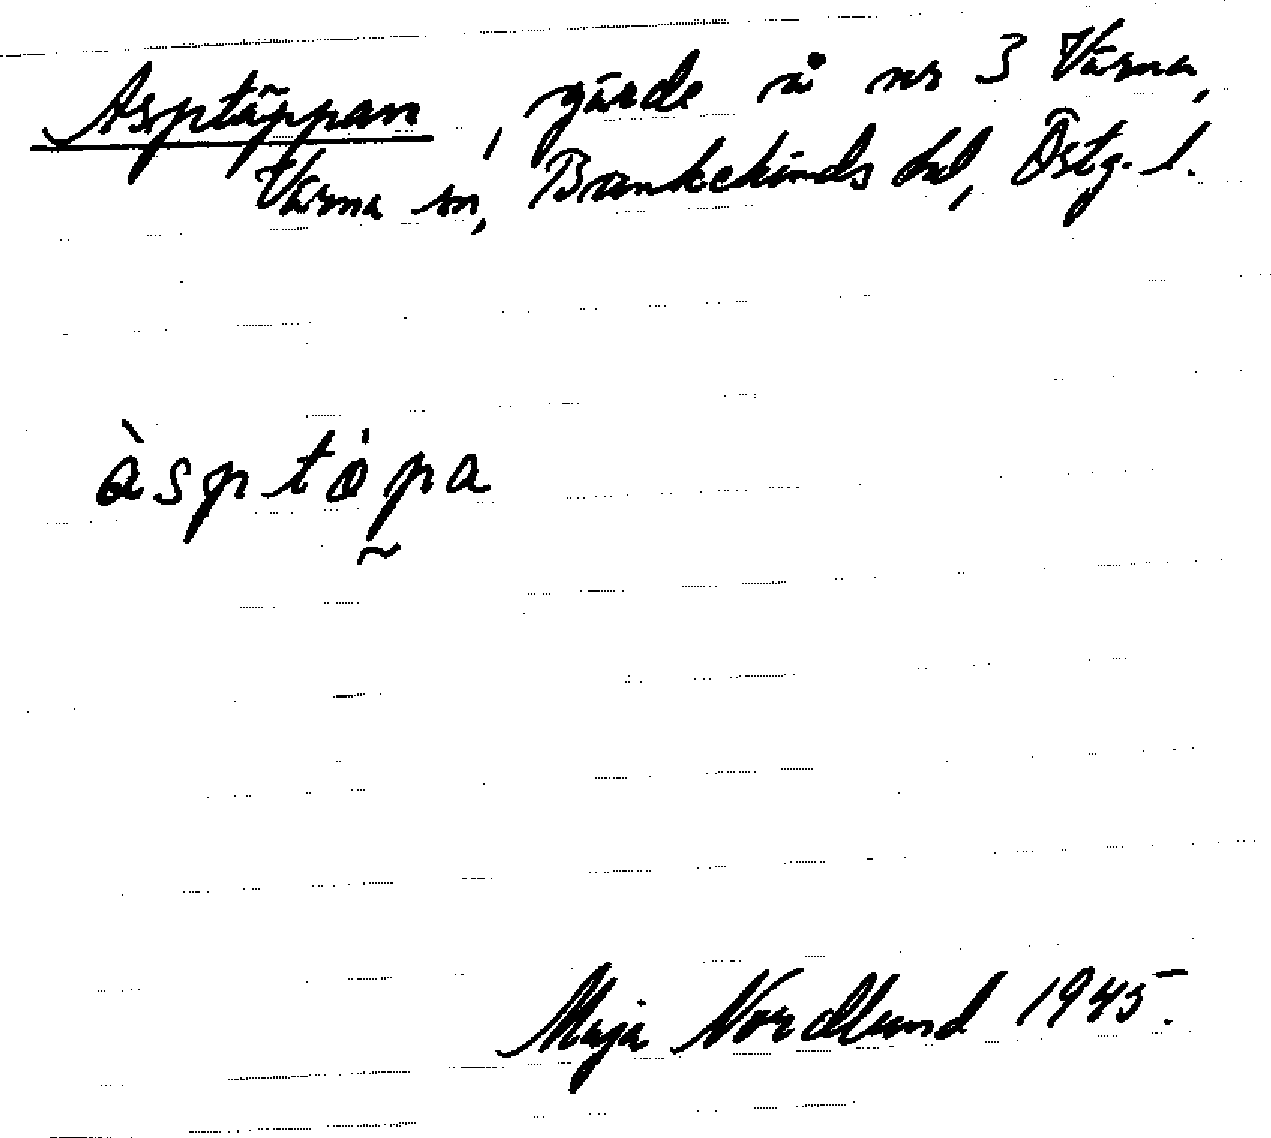 Asptäppan, gärde å nr 3 Värna,
Värna sn, Bankekinds hd, Östg. l.
àsptȧpa
Maja Nordlund 1945.